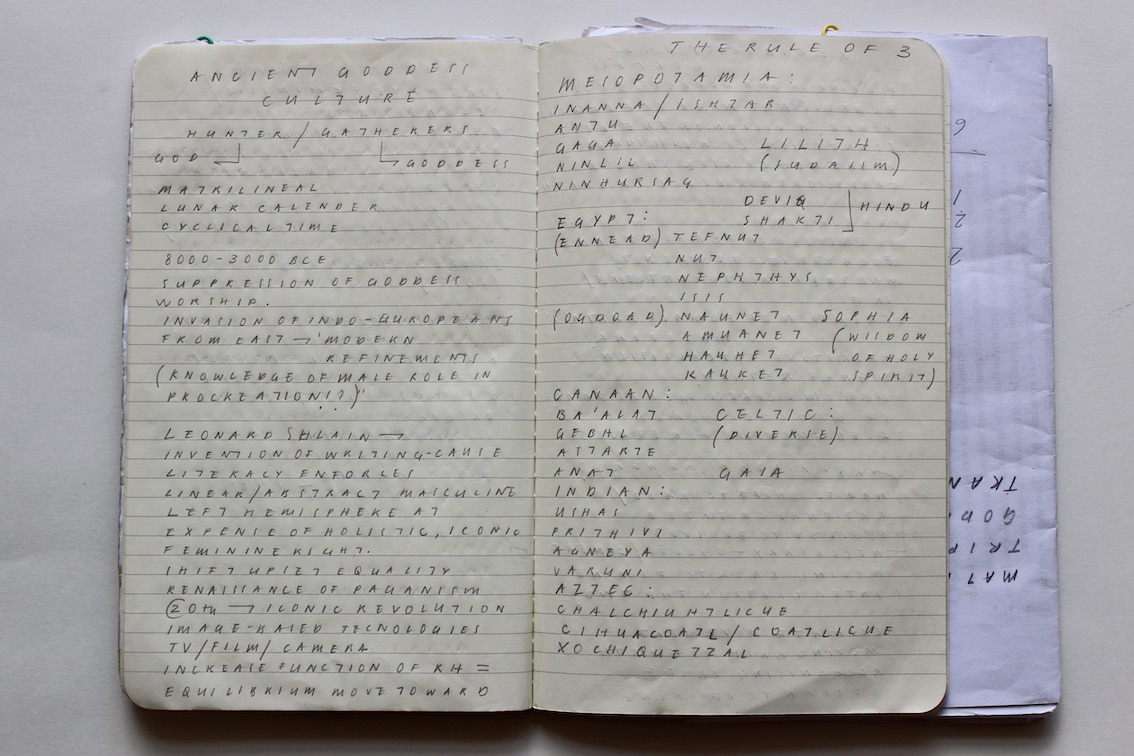 ANCIENT GODDESS
CULTURE
HUNTER / GATHERERS
GOD
GODDESS
MATRILINEAL
LUNAR CALENDER
CYCLICAL TIME
8000-3000 BCE
SUPPRESSION OF GODDESS
WORSHIP.
INVASION OF INDO-EUROPEANS
FROM EAST → 'MODERN
REFINEMENTS
(KNOWLEDGE OF MALE ROLE IN
PROCREATION!?)'
LEONARD SHLAIN →
INVENTION OF WRITING-CAUSE
LITERACY ENFORCES
LINEAR/ABSTRACT MASCULINE
LEFT HEMISPHERE AT
EXPENSE OF HOLISTIC, ICONIC
FEMININE RIGHT.
SHIFT UPSET EQUALITY
RENAISSANCE OF PAGANISM
20TH → ICONIC REVOLUTION
IMAGE-BASED TECNOLOGIES
TV/FILM/CAMERA
INCREASE FUNCTION OF RH =
EQUILIBRIUM MOVE TOWARD
THE RULE OF 3
MESOPOTAMIA:
INANNA/ISHTAR
ANTU
GAGA
NINLIL
NINHURSAG
LILITH
(JUDAISM)
DEVI
SHAKTI
HINDU
EGYPT:
(ENNEAD) TEFNUT
NUT
NEPHTHYS
ISIS
(OGDOAD) NAUNET
AMUANET
HAUHET
KAUKET
SOPHIA
(WISDOM
OF HOLY
SPIRIT)
CANAAN:
BA'ALAT
GEBHL
ASTARTE
ANAT
CELTIC:
(DIVERSE)
GAIA
INDIAN:
USHAS
PRITHIVI
AGNEYA
VARUNI
AZTEC:
CHALCHIUHTLICUE
CIHUACOATL/COATLICUE
XOCHIQUETZAL
6
1
2
2
TRAN
GOD
TRIP
MAT